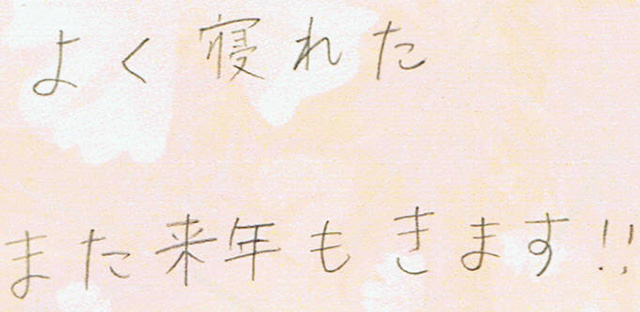 よく寝れた
また来年もきます!!